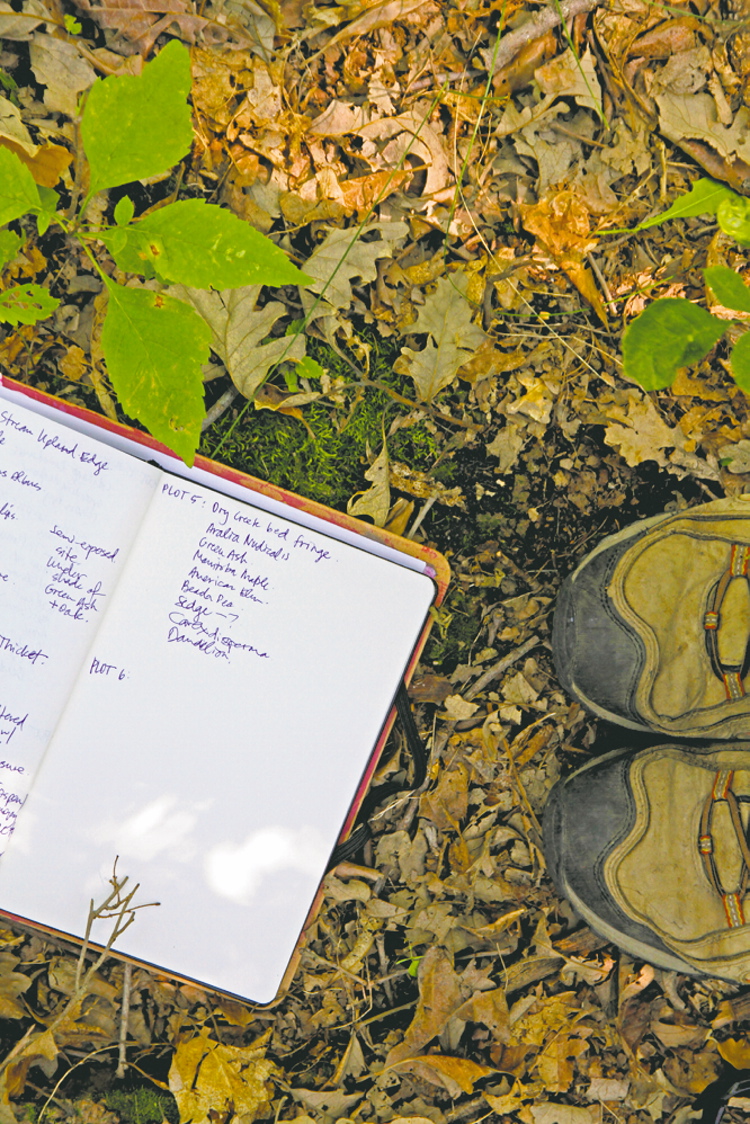 Stream Upland Edge
Semi-exposed
site
under
shade of
Green Ash
+ Oak.
Thicket.
PLOT 5: Dry Creek bed fringe.
Aralia Nudicalis
Green Ash
Manitoba Maple.
American Elm.
Beada Pea.
Sedge → ?
Carex disperma
Dandelion.
PLOT 6: